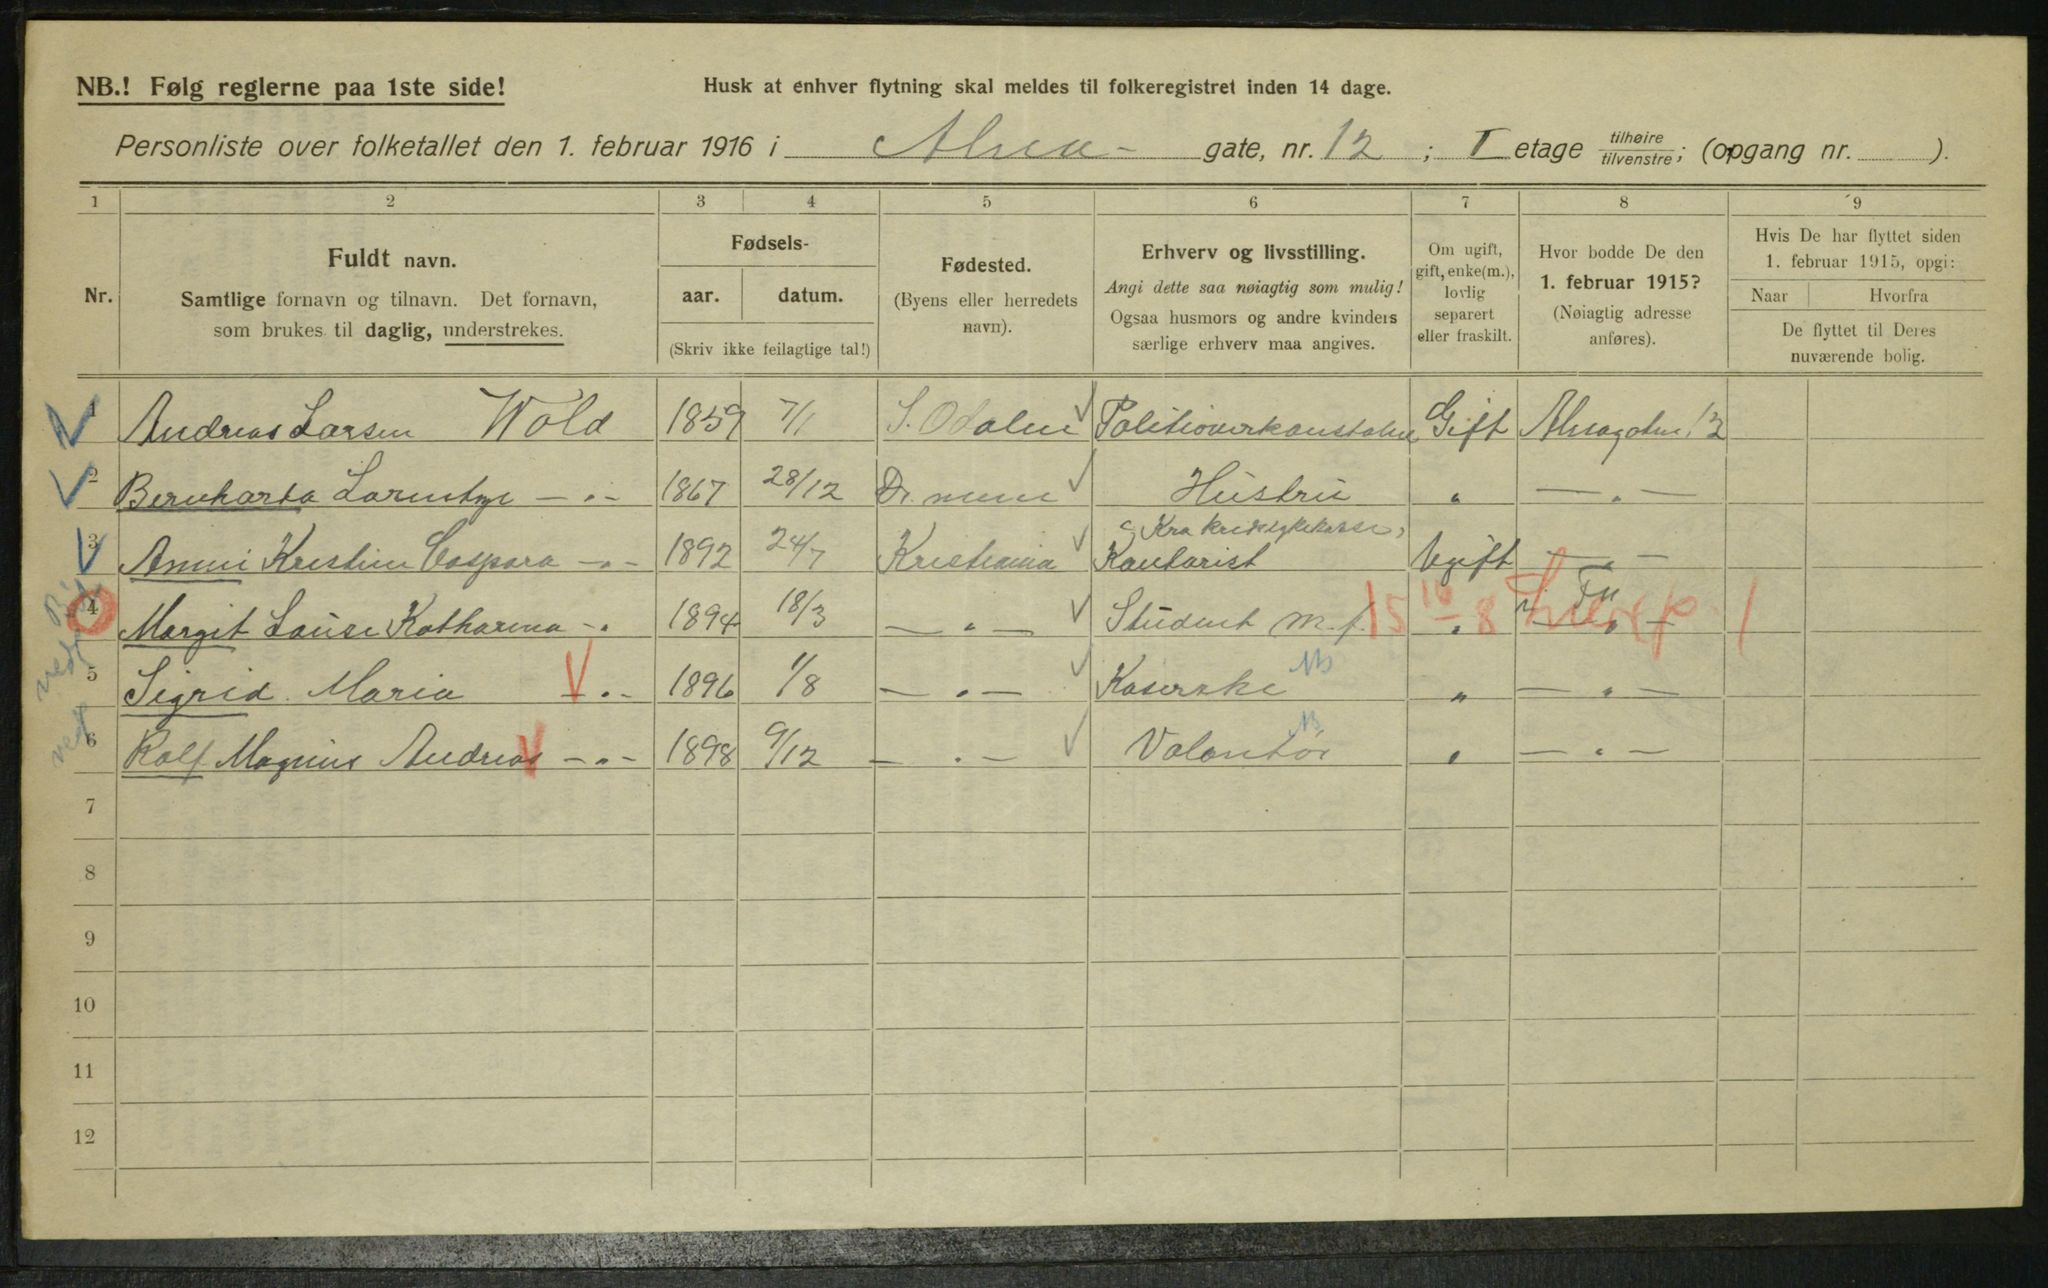 NB.! Følg reglerne paa 1ste side! Husk at enhver flytning skal meldes til folkeregistret inden 14 dage.
Personliste over folketallet den 1. februar 1916 i Alma- gate, nr. 12 ; I etage tilhøire tilvenstre ; (opgang nr. ).
1 2 3 4 5 6 7 8 9
Nr.
Fuldt navn.
Samtlige fornavn og tilnavn. Det fornavn,
som brukes til daglig, understrekes.
Fødsels-
aar. datum.
(Skriv ikke feilagtige tal!)
Fødested.
(Byens eller herredets
navn).
Erhverv og livsstilling.
Angi dette saa nøiagtig som mulig!
Ogsaa husmors og andre kvinders
særlige erhverv maa angives.
Om ugift,
gift, enke(m.),
lovlig
separert
eller fraskilt.
Hvor bodde De den
1. februar 1915?
(Nøiagtig adresse
anføres).
Hvis De har flyttet siden
1. februar 1915, opgi:
Naar Hvorfra
De flyttet til Deres
nuværende bolig.
1 Andreas Larsen Wold 1859 7/1 S. Odalen Gift 12
2 Bernharda — " — 1867 28/12 Hustru " — " —
3 Anni Kristine Caspara — " — 1892 24/7 Kristiania Kontorist Ugift — " —
4 Margit Louise Katharina — " 1894 18/3 — " — Student " — " —
15 16/8
5 Sigrid Maria — " — 1896 1/8 — " — Kaserske " — " —
6 Rolf Magnus Andreas — " — 1898 9/12 — " — Volontør " — " —
7
8
9
10
11
12